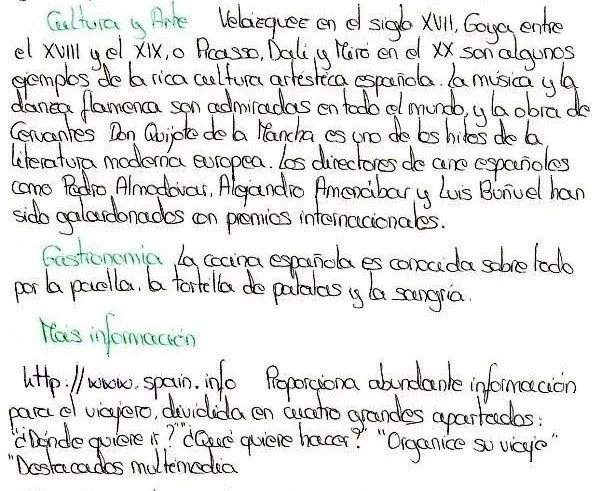 Cultura y Arte Velázquez en el siglo XVII, Goya entre
el XVIII y el XIX, o Picasso, Dalí y Miró en el XX son algunos
ejemplos de la rica cultura artística española. La música y la
danza flamenca son admiradas en todo el mundo, y la obra de
Cervantes Don Quijote de la Mancha es uno de los hitos de la
literatura moderna europea. Los directores de cine españoles
como Pedro Almodóvar, Alejandro Amenábar y Luis Buñuel han
sido galardonados con premios internacionales.
Gastronomía La cocina española es conocida sobre todo
por la paella, la tortilla de patatas y la sangría.
Más información
http://www.spain.info Proporciona abundante información
para el viajero, dividida en cuatro grandes apartados:
"¿Dónde quiere ir?" "¿Qué quiere hacer?" "Organice su viaje"
"Destacados multimedia